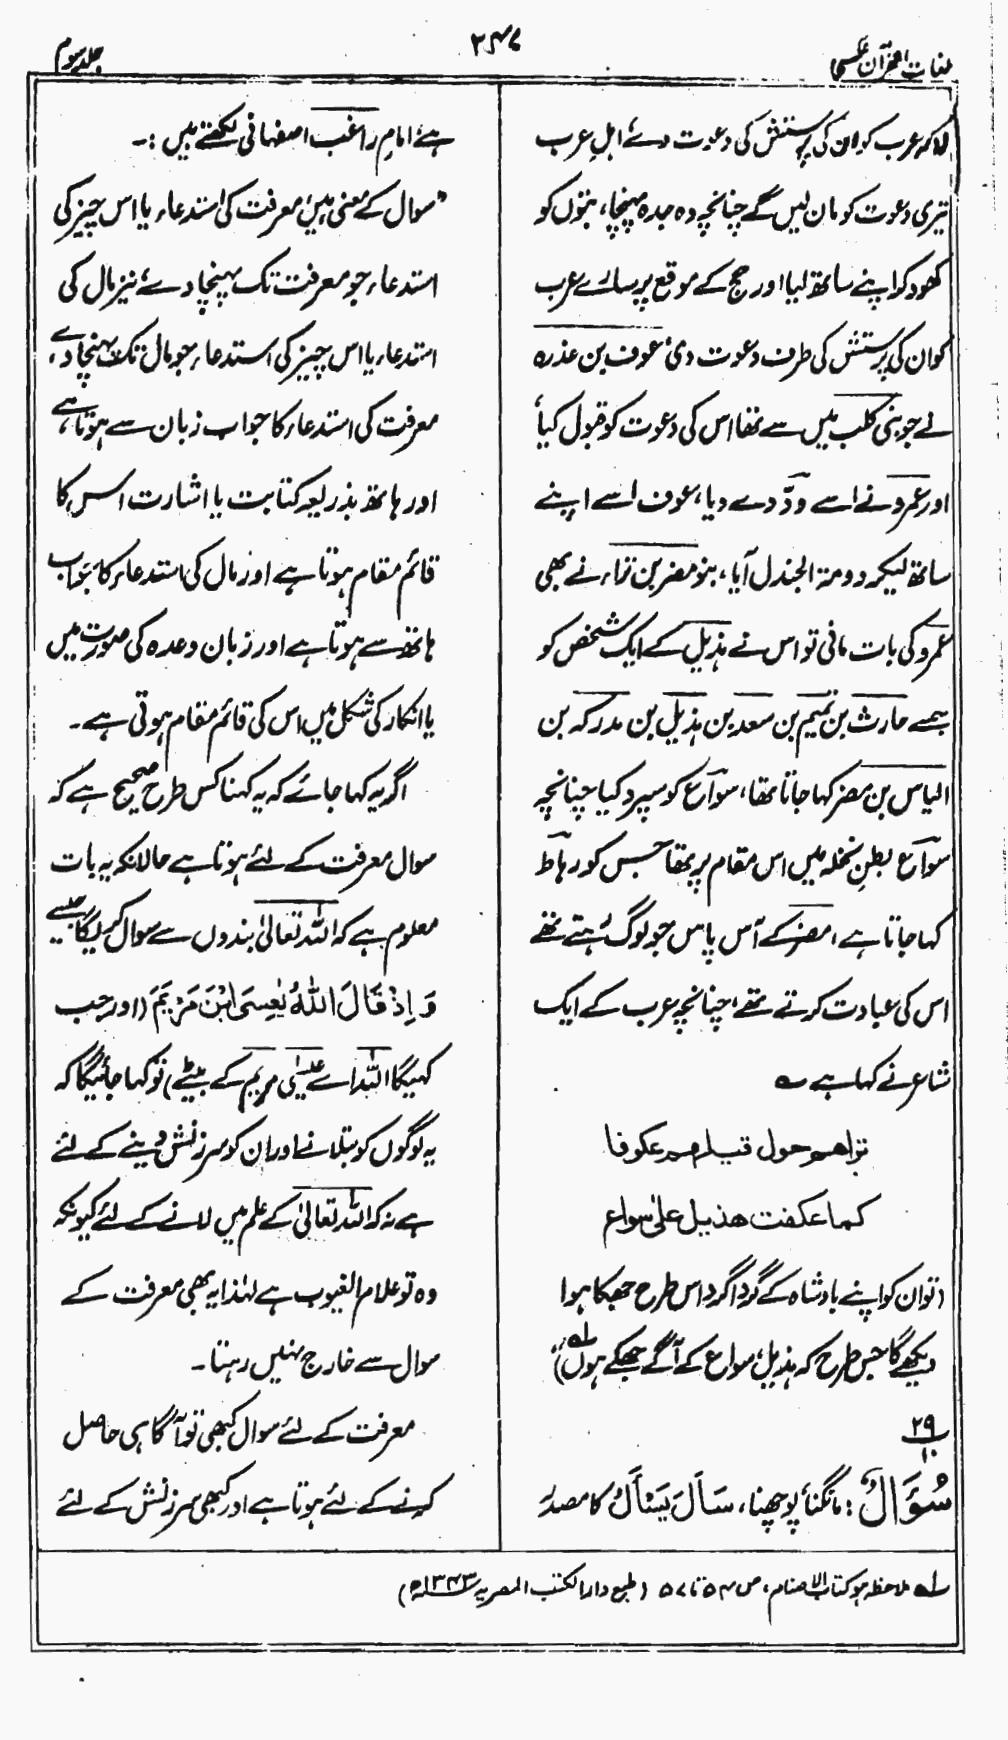 لغات القرآن عکسی
۲۴۷
جلد سوم
لاکر عرب کو ان کی پرستش کی دعوت دے، اہل عرب
تیری دعوت کو مان لیں گے چنانچہ وہ جدہ پہنچا، بتوں کو
کھود کر اپنے ساتھ لیا اور حج کے موقع پر سارے عرب
کو ان کی پرستش کی طرف دعوت دی، عوف بن عذرہ
نے جو بنی کلب میں سے تھا اس کی دعوت کو قبول کیا،
اور عمرو نے اسے ودّ دے دیا، عوف اسے اپنے
ساتھ لیکر دومۃ الجندل آیا، بنو مضر بن نزار نے بھی
عمرو کی بات مانی تو اس نے ہذیل کے ایک شخص کو
جسے حارث بن تمیم بن سعد بن ہذیل بن مدرکہ بن
الیاس بن مضر کہا جاتا تھا، سواع کو سپرد کیا چنانچہ
سواع بطنِ نخلہ میں اس مقام پر تھا جس کو رھاط
کہا جاتا ہے، مضر کے آس پاس جو لوگ رہتے تھے
اس کی عبادت کرتے تھے، چنانچہ عرب کے ایک
شاعر نے کہا ہے ؎
تراهم حول قيلهم عكوفا
كما عكفت هذيل على سواع
(تو ان کو اپنے بادشاہ کے گرداگرد اس طرح جھکا ہوا
دیکھے گا جس طرح کہ ہذیل، سواع کے آگے جھکے ہوں) لہ
۲۹
۱۰
سُؤَالٌ : مانگنا، پوچھنا، سَأَلَ یَسْأَلُ کا مصدر
ہے، امام راغب اصفہانی لکھتے ہیں :۔
"سوال کے معنی ہیں معرفت کی استدعاء، یا اس چیز کی
استدعاء جو معرفت تک پہنچا دے، نیز مال کی
استدعاء یا اس چیز کی استدعاء جو مال تک پہنچا دے،
معرفت کی استدعاء کا جواب زبان سے ہوتا ہے،
اور ہاتھ بذریعہ کتابت یا اشارت اس کا
قائم مقام ہوتا ہے اور مال کی استدعاء کا جواب
ہاتھ سے ہوتا ہے اور زبان وعدہ کی صورت میں
یا انکار کی شکل میں اس کی قائم مقام ہوتی ہے۔
اگر یہ کہا جائے کہ یہ کہنا کس طرح صحیح ہے کہ
سوال معرفت کے لئے ہوتا ہے حالانکہ یہ بات
معلوم ہے کہ اللہ تعالیٰ بندوں سے سوال کریگا جیسے
وَ اِذْ قَالَ اللّٰهُ یٰعِیسَى ابْنَ مَرْیَمَ (اور جب
کہیگا اللہ اے عیسٰی مریم کے بیٹے) تو کہا جائیگا کہ
یہ لوگوں کو بتلانے اور ان کو سرزنش دینے کے لئے
ہے نہ کہ اللہ تعالیٰ کے علم میں لانے کے لئے کیونکہ
وہ تو علام الغیوب ہے لہٰذا یہ بھی معرفت کے
سوال سے خارج نہیں رہتا۔
معرفت کے لئے سوال کبھی تو آگاہی حاصل
کرنے کے لئے ہوتا ہے اور کبھی سرزنش کے لئے
لہ ملاحظہ ہو کتاب الاصنام، ص ۵۴ تا ۵۷ (طبع دار الکتب المصریہ ۱۳۴۳ھ)